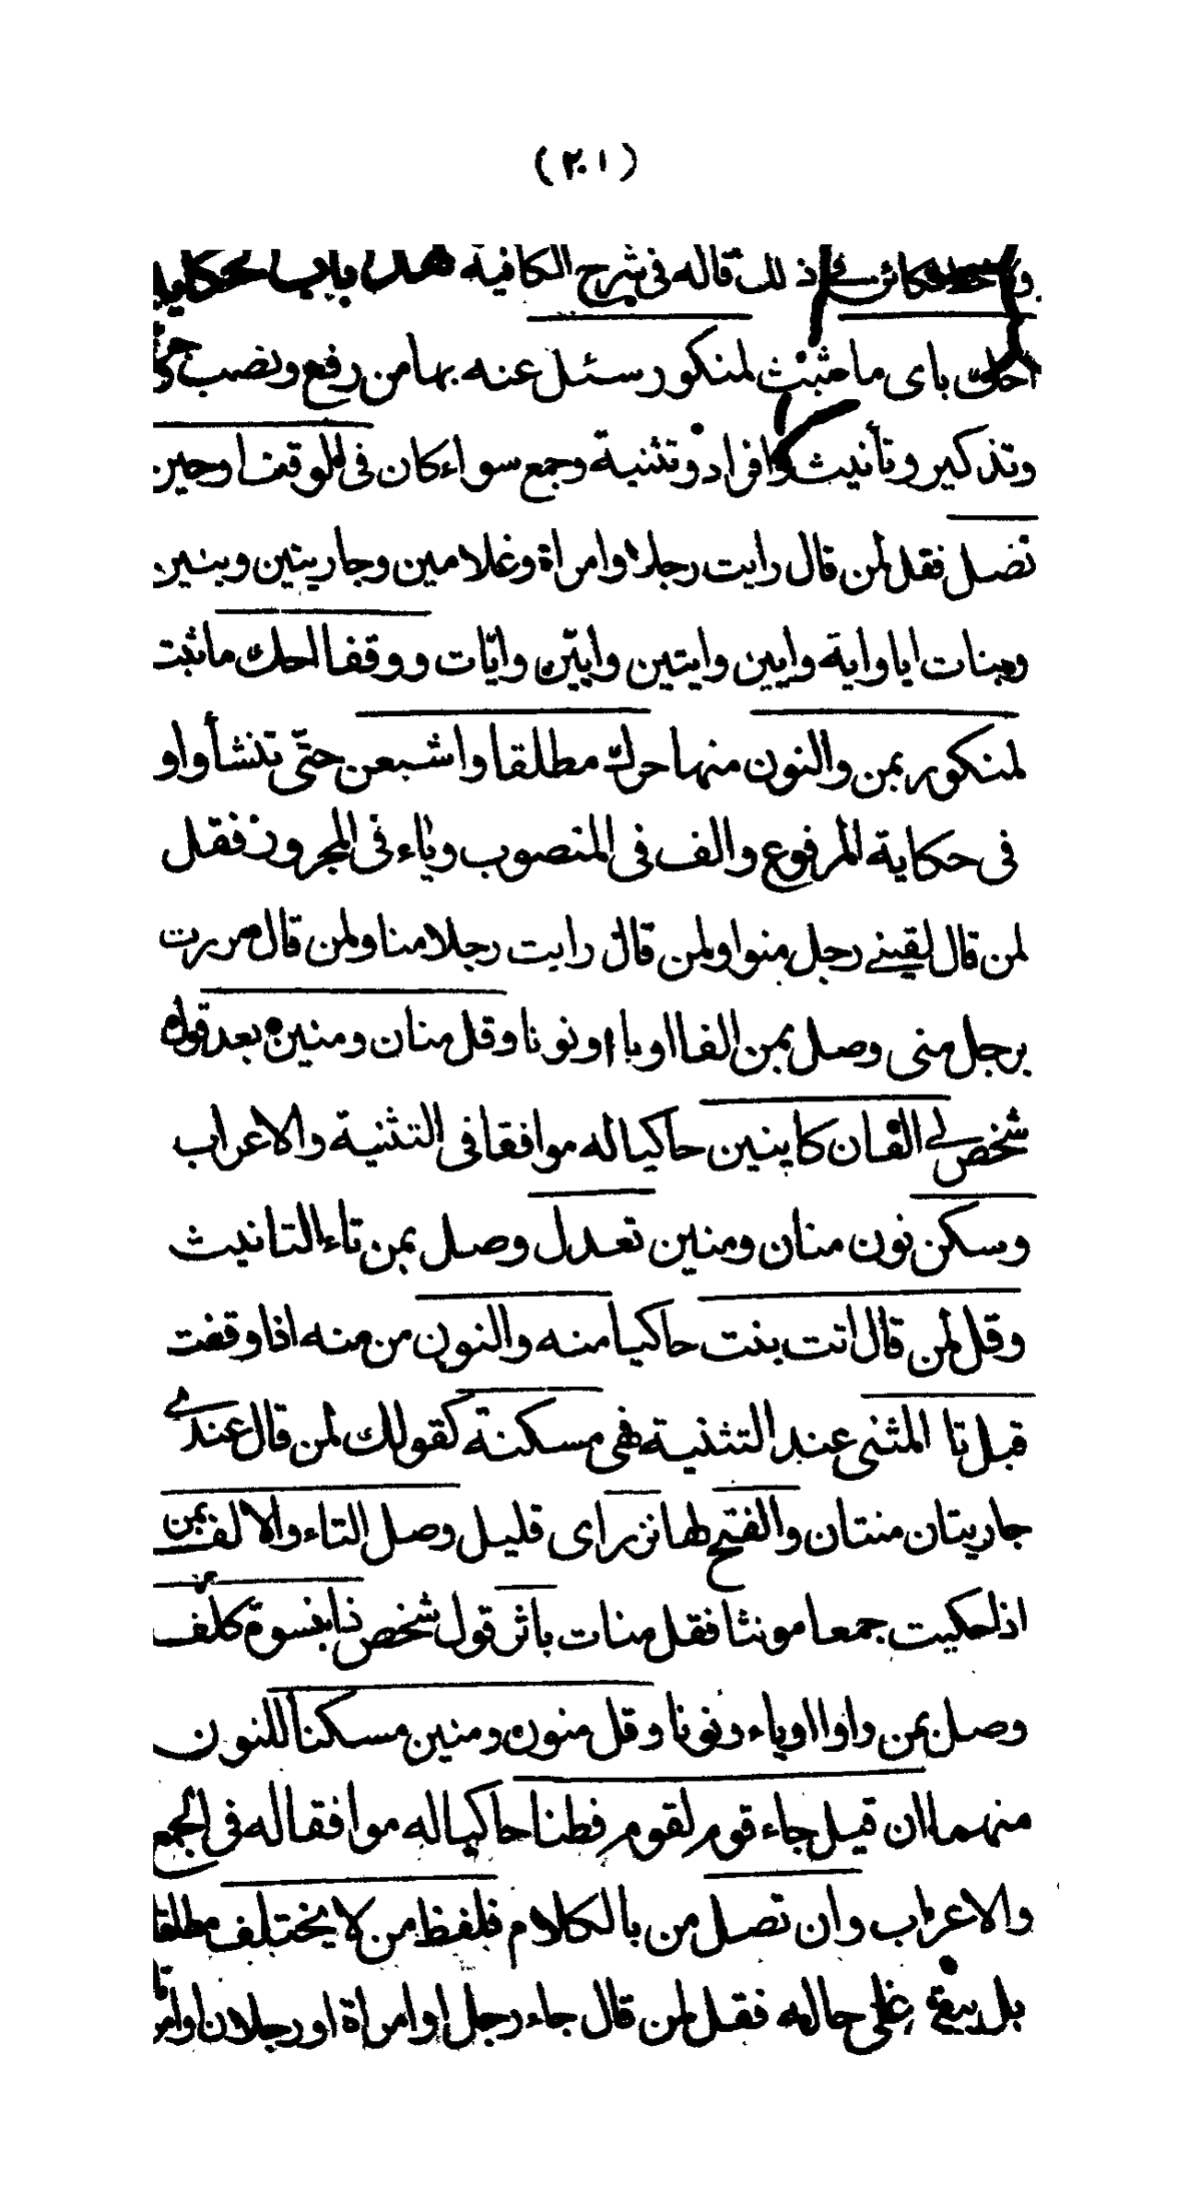 (٢٠١)
ذلك قاله فى شرح الكافية هذا باب الحكاية
احك باى ما ثبت لمنكور سئل عنه بها من رفع ونصب وجر
وتذكير وتأنيث وافراد وتثنية وجمع سواء كان فى الوقف اوحين
تصل فقل لمن قال رايت رجلا وامراة وغلامين وجاريتين وبنين
وبنات ايا واية وايين وايتين وايين وايّات ووقفا احك ماثبت
لمنكور بمن والنون منها حرك مطلقا واشبعن حتّى تنشأ واو
فى حكاية المرفوع والف فى المنصوب وياء فى المجرور فقل
لمن قال لقينى رجل منو ولمن قال رايت رجلا منا ولمن قال مررت
برجل منى وصل بمن الفا اوياء ونونا وقل منان ومنين بعد قوله
شخص لى الفان كابنين حاكيا له موافقا فى التثنية والاعراب
وسكن نون منان ومنين تعدل وصل بمن تاء التانيث
وقل لمن قال اتت بنت حاكيا منه والنون من منه اذا وقفت
قبل تا المثنى عند التثنية فهى مسكنة كقولك لمن قال عندى
جاريتان منتان والفتح لها نزر اى قليل وصل التاء والالف بمن
اذا حكيت جمعا مونثا فقل منات باثر قول شخص ذا بنسوة كلف
وصل بمن واوا اوياء ونونا وقل منون ومنين مسكنا للنون
منهما ان قيل جاء قوم لقوم فطنا حاكيا له موافقا له فى الجمع
والاعراب وان تصل من بالكلام فلفظ من لا يختلف مطلقا
بل يبقى على حاله فقل لمن قال جاء رجل او امراة او رجلان او